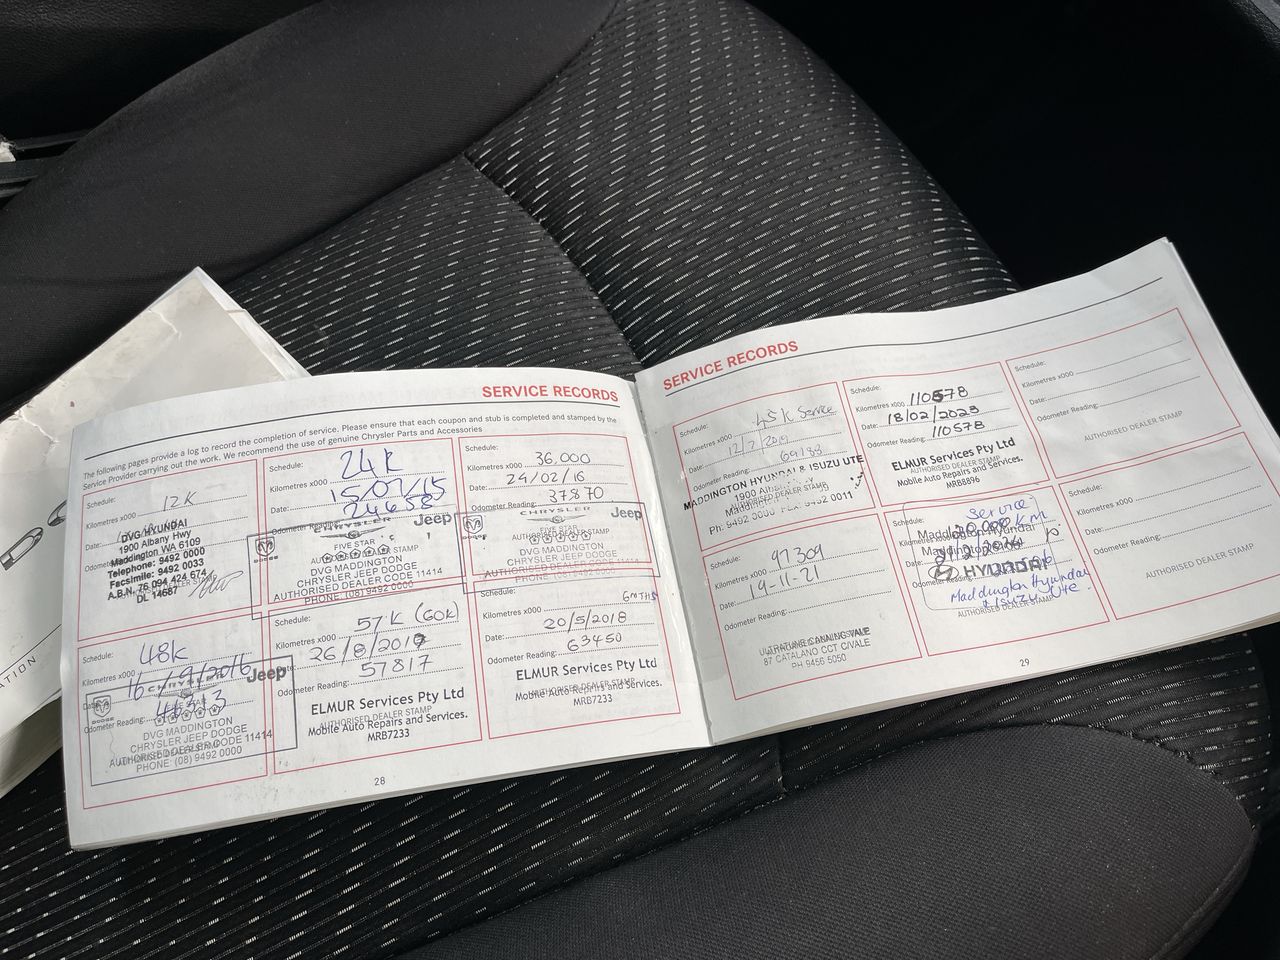 SERVICE RECORDS
The following pages provide a log to record the completion of service. Please ensure that each coupon and stub is completed and stamped by the
Service Provider carrying out the work. We recommend the use of genuine Chrysler Parts and Accessories
Schedule:
12K
Kilometres x000
Date:
DVG HYUNDAI
1900 Albany Hwy
Maddington WA 6109
Telephone: 9492 0000
Facsimile: 9492 0033
A.B.N. 76 094 424 674
DL 14687
Schedule: 24K
Kilometres x000
15/07/15
24658
Odometer Reading:
CHRYSLER Jeep
DODGE FIVE STAR
AUTHORISED DEALER STAMP
DVG MADDINGTON
CHRYSLER JEEP DODGE
AUTHORISED DEALER CODE 11414
PHONE: (08) 9492 0000
Schedule: 36,000
Kilometres x000
Date: 24/02/16
Odometer Reading: 37870
CHRYSLER Jeep
DODGE FIVE STAR
AUTHORISED DEALER STAMP
DVG MADDINGTON
CHRYSLER JEEP DODGE
AUTHORISED DEALER CODE 11414
PHONE: (08) 9492 0000
Schedule: 48K
Kilometres x000
16/9/2016
Odometer Reading:
CHRYSLER Jeep
DODGE
DVG MADDINGTON
CHRYSLER JEEP DODGE
AUTHORISED DEALER CODE 11414
PHONE: (08) 9492 0000
Schedule: 57K (60K)
Kilometres x000
Date: 26/8/2017
Odometer Reading: 57817
ELMUR Services Pty Ltd
AUTHORISED DEALER STAMP
Mobile Auto Repairs and Services.
MRB7233
Schedule:
Kilometres x000 6mTHS
Date: 20/5/2018
Odometer Reading: 63450
ELMUR Services Pty Ltd
AUTHORISED DEALER STAMP
Mobile Auto Repairs and Services.
MRB7233
28
SERVICE RECORDS
Schedule:
Service
Kilometres x000
Date:
Odometer Reading:
MADDINGTON HYUNDAI & ISUZU UTE
AUTHORISED DEALER STAMP
Ph: 9492 0000 FAX 9492 0011
Schedule:
Kilometres x000 110578
Date: 18/02/2023
Odometer Reading: 110578
ELMUR Services Pty Ltd
AUTHORISED DEALER STAMP
Mobile Auto Repairs and Services.
MRB8896
Schedule:
Kilometres x000
Date:
Odometer Reading:
AUTHORISED DEALER STAMP
Schedule: 97309
Kilometres x000
Date: 19-11-21
Odometer Reading:
ULTRATUNE CANNING VALE
87 CATALANO CCT C/VALE
PH 9456 5050
Schedule: Service
Kilometres x000
Maddington Hyundai
HYUNDAI
Maddington Hyundai
Isuzu Ute.
AUTHORISED DEALER STAMP
Schedule:
Kilometres x000
Date:
Odometer Reading:
AUTHORISED DEALER STAMP
29